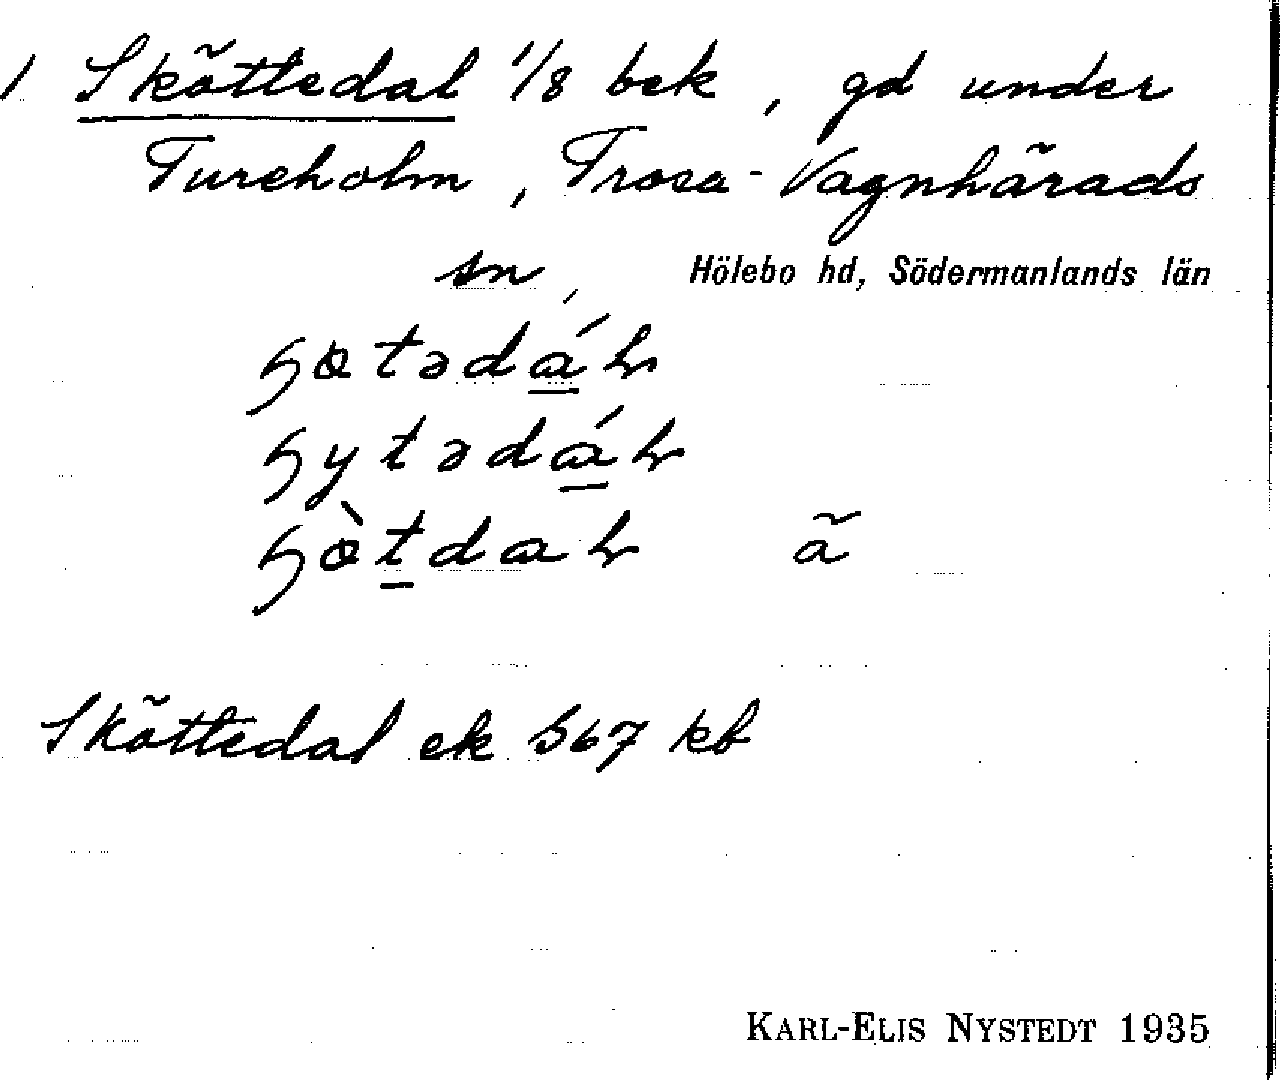 1 Sköttedal 1/8 bek , gd under
Tureholm , Trosa-Vagnhärads
sn , Hölebo hd, Södermanlands län
ã
Sköttedal ek 567 kb
KARL-ELIS NYSTEDT 1935